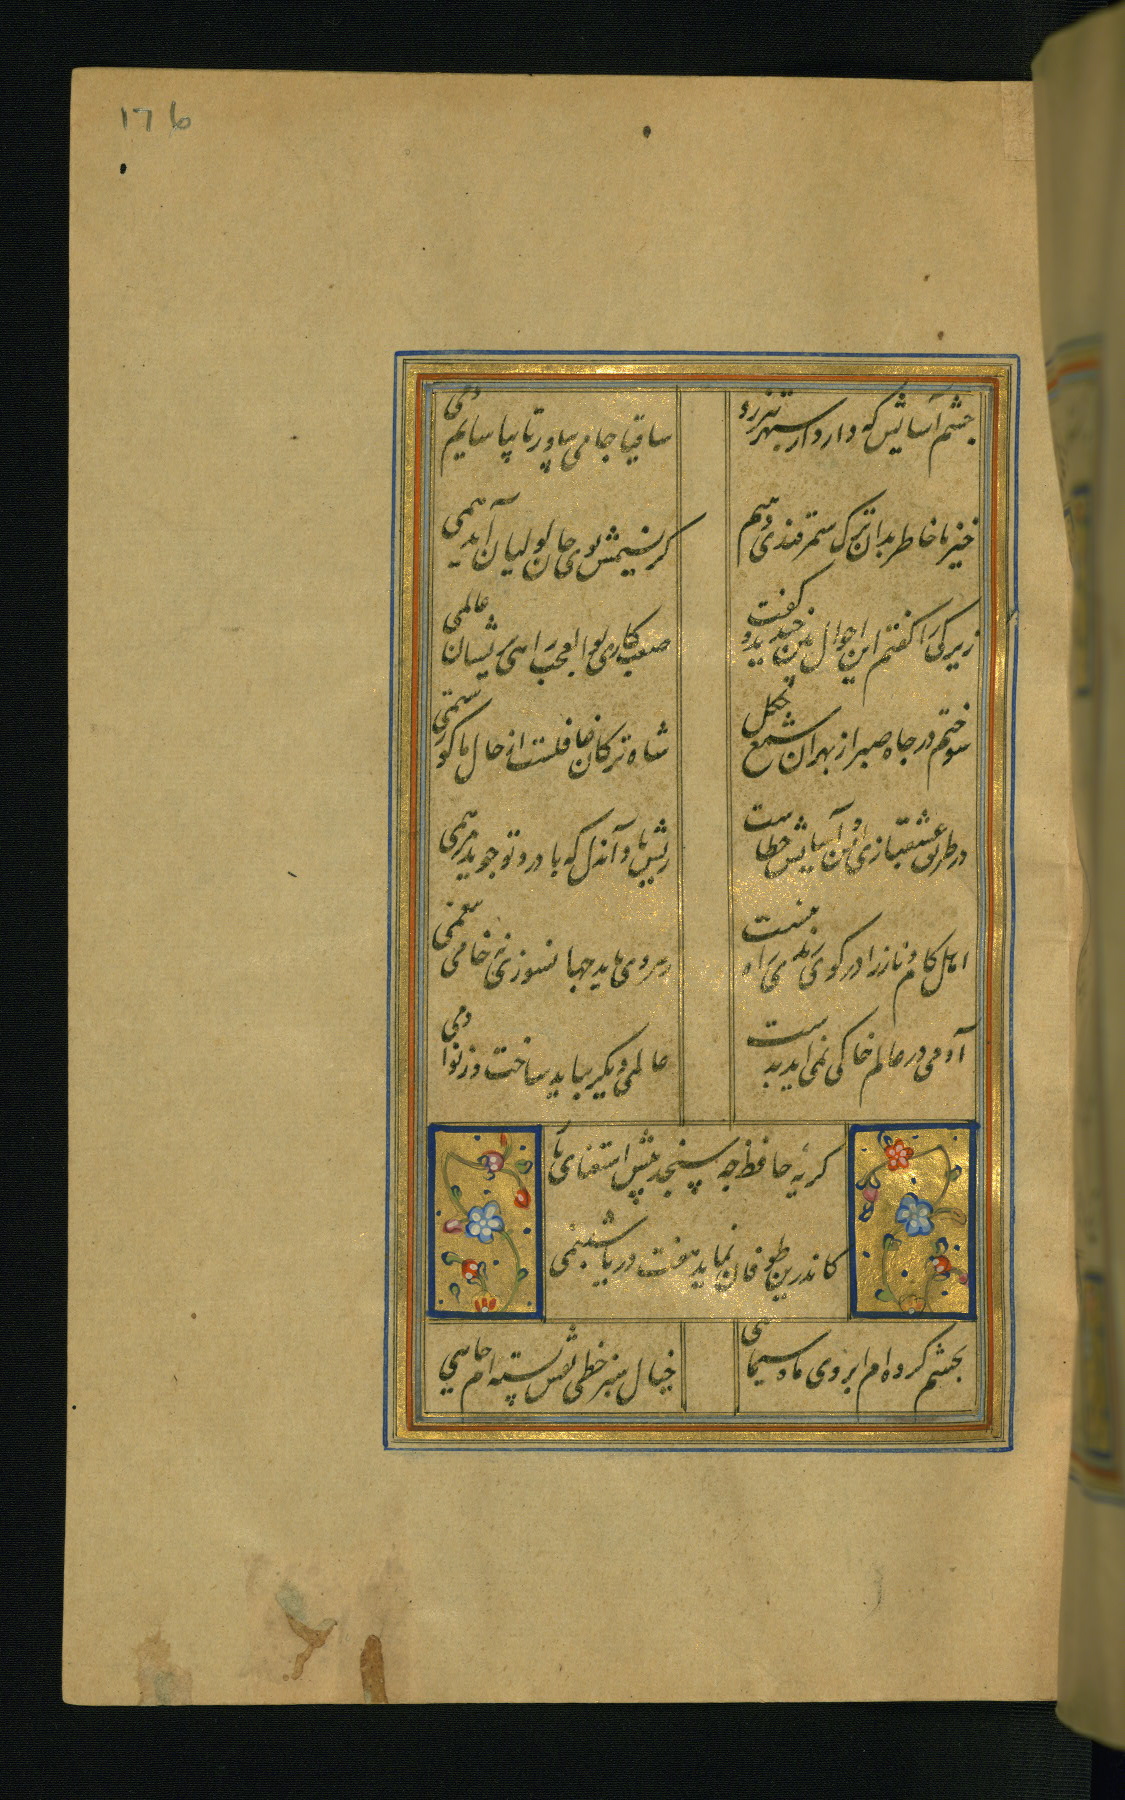 176
چشم آسایش که دارد از سپهر تیزرو ساقیا جامی بیاور تا بیاسایم دمی
خیز تا خاطر بدان ترک سمرقندی دهیم کز نسیمش بوی جان لولیان آید همی
زیرکی را گفتم این احوال بین خندید و گفت صعب کاری بوالعجب راهی پریشان عالمی
سوختم در چاه صبر از بهر آن شمع چگل شاه ترکان غافلست از حال ما کو رستمی
در طریق عشقبازی امن و آسایش خطاست ریش باد آندل که با درد تو جوید مرهمی
اهل کام و ناز را در کوی رندی راه نیست رهروی باید جهانسوزی نه خامی بیغمی
آدمی در عالم خاکی نمی آید بدست عالمی دیگر بباید ساخت وز نو آدمی
گریه حافظ چه سنجد پیش استغنای ما
کاندرین طوفان نماید هفت دریا شبنمی
بچشم کرده ام ابروی ماه سیمایی خیال سبز خطی نقش بسته ام جایی